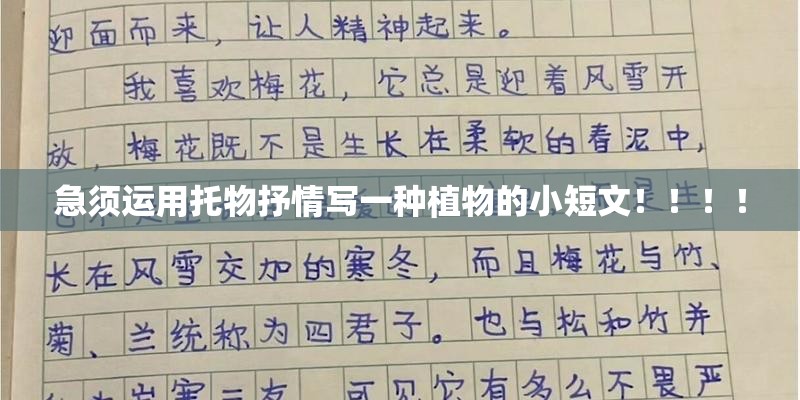 迎面而来，让人精神起来。
我喜欢梅花，它总是迎着风雪开
放，梅花既不是生长在柔软的春泥中，
急须运用托物抒情写一种植物的小短文！！！！
长在风雪交加的寒冬，而且梅花与竹、
菊、兰统称为四君子。也与松和竹并
岁寒三友 可见它有多么不畏严